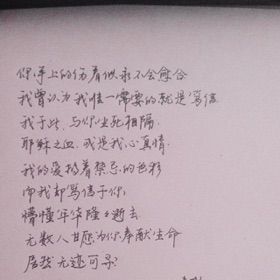 你手上的伤看似永不会愈合
我曾认为我唯一需要的就是笃信
我于此，与你生死相隔
耶稣之血，或是我心真情
我的爱披着禁忌的色彩
而我却笃信于你
懵懂年华隆上逝去
无数人甘愿为你奉献生命
居然无迹可寻？